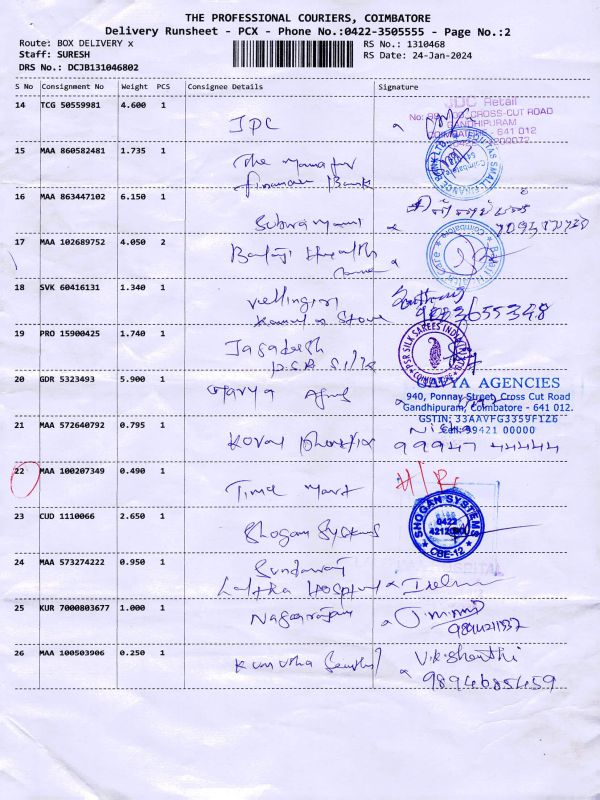 THE PROFESSIONAL COURIERS, COIMBATORE
Delivery Runsheet - PCX - Phone No.:0422-3505555 - Page No.:2
Route: BOX DELIVERY x
RS No.: 1310468
Staff: SURESH
RS Date: 24-Jan-2024
DRS No.: DCJB131046802
S No Consignment No Weight PCS Consignee Details Signature
14 TCG 50559981 4.600 1
JPC
JDC Retail
CROSS-CUT ROAD
GANDHIPURAM
COIMBATORE - 641 012
15 MAA 860582481 1.735 1
The Manager
Bank
16 MAA 863447102 6.150 1
17 MAA 102689752 4.050 2
Balaji Health
Care
18 SVK 60416131 1.340 1
Vellingiri
Store
9023655348
19 PRO 15900425 1.740 1
Jagadesh
PSR Silk
PSR SILK SAREES INDIA
COIMBATORE
20 GDR 5323493 5.900 1
GAVYA AGENCIES
940, Ponnay Street, Cross Cut Road
Gandhipuram, Coimbatore - 641 012.
GSTIN: 33AAVFG3359F1Z6
Cell: 99421 00000
21 MAA 572640792 0.795 1
Nisha
99947 44444
22 MAA 100207349 0.490 1
Time Mart
23 CUD 1110066 2.650 1
Shogan Systems
SHOGAN SYSTEMS
0422
CBE-12
24 MAA 573274222 0.950 1
Sundaraj
Hospital
25 KUR 7000803677 1.000 1
Nagarajan
26 MAA 100503906 0.250 1
V.K.Shanthi
9894685459